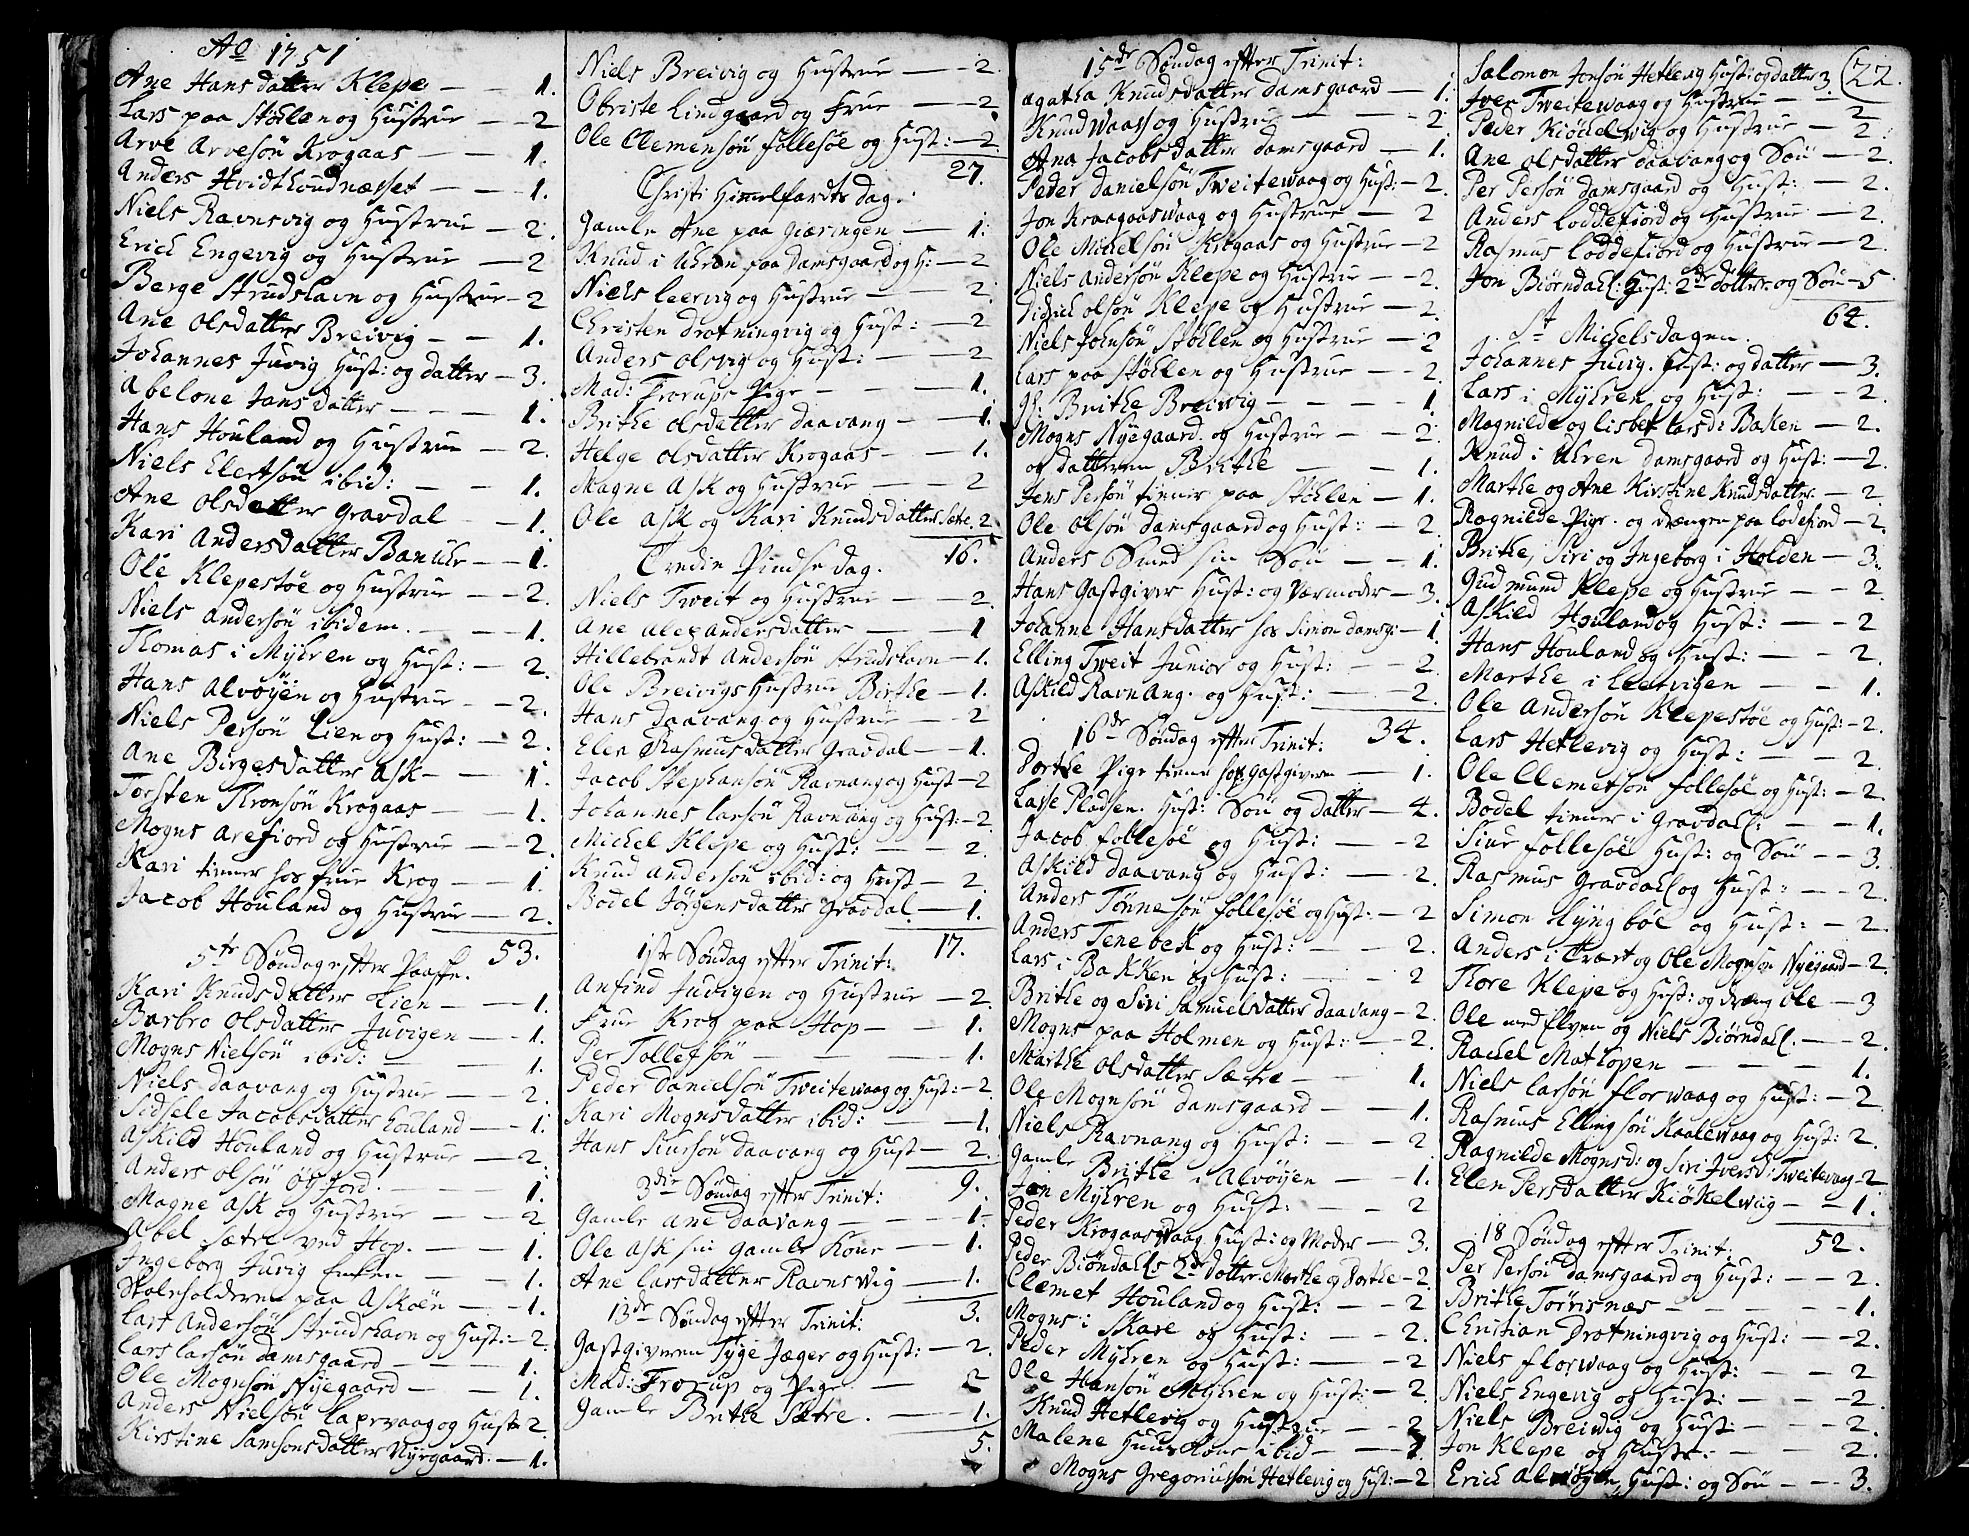 Ao 1751
Ane Hansdatter Klepe — — 1.
Lars paa Stöhlen og Hustrue — — 2
Arve Arvesön Krogaas — — 1.
Anders Hvidthoudnæsset — — 1.
Niels Ravnsvig og Hustrue — — 2.
Erich Engevig og Hustrue — — 2
Berge Strudshavn og Hustrue — 2
Ane Olsdatter Breivig — — 1.
Johannes Juvig Hust: og datter — 3.
Abelone Jansdatter — — — 1.
Hans Houland og Hustrue — 2.
Niels Elertsön ibid: — — 1.
Ane Olsdatter Gravdal — 1.
Kari Andersdatter — 1.
Ole Klepestöe og Hustrue — — 2.
Niels Andersön ibidem. — — 1.
Thomas i Myhren og Hust: — 2.
Hans Alvöyen og Hustrue — 2.
Niels Persön Lien og Hust: — 2.
Ane Birgesdatter Ask — — 1.
Torsten Thronsön Krogaas — — 1.
Mogns Arefiord og Hustrue — — 2.
Kari tiener hos frue Krog — — 1.
Jacob Houland og Hustrue — 2.
53.
5te Söndag efter Paaske.
Kari Knudsdatter Lien — — 1.
Barbro Olsdatter Juvigen — — 1.
Mogns Nielsön ibid: — — 1.
Niels Daavang og Hustrue — — 2.
Sidsele Jacobsdatter Houland — — 1.
Askild Houland og Hustrue — — 2.
Anders Olsön — — 1.
Magne Ask og Hustrue — — 2
Abel Sætre ved Hop. — — 1.
Ingeborg Juvig Enken — — 1.
Skoleholderen paa Askøen — — 1.
Lars Andersön Strudshavn og Hust: — 2.
Lars Larsön Damsgaard — — 1.
Ole Mognsön Nyegaard — — 1.
Anders Nielsön og Hustr 2
Kirstine Samsonsdatter Nyegaard. — 1.
Niels Breivig og Hustrue — — 2.
Obriste Lindgaard og Frue — — 2
Ole Clemensön Follesöe og Hust: — 2
27.
Christi Himelfarts Dag.
Gamle Ane paa — 1.
Knud i Uhren paa Damsgaard og H: — 2
Niels Leervig og Hustrue — — 2.
Christen Drotningvig og Hust: — 2
Anders Olsvig og Hust: — — 2
Mad: Frorups Pige — — — 1.
Brithe Olsdatter Daavang — — 1.
Helge Olsdatter Krogaas — — 1.
Magne Ask og Hustrue — — 2
Ole Ask og Kari Knudsdatter Sætre 2
16.
Tredie Pindse Dag.
Niels Tweit og Hustrue — — 2.
Ane Alexandersdatter — — 1
Hillebrandt Andersön Strudshavn — 1.
Ole Breivigs Hustrue Birthe — 1.
Hans Daavang og Hustrue — — 2
Elen Rasmusdatter Gravdal — — 1.
Jacob Stephansön Ravnang og Hust — 2
Johannes Larsön Ravnang og Hust: — 2
Michel Klepe og Hust: — — 2.
Knud Andersön ibid: og Hust — 2.
Bodel Jörgensdatter Gravdal. — 1.
17.
1ste Söndag efter Trinit:
Anfind Juvigen og Hustrue — — 2.
Frue Krog paa Hop — — 1.
Per Tollefsön — — 1.
Peder Danielsön Tweitewaag og Hust: — 2
Kari Mognsdatter ibid: — — 1.
Hans Siursön Daavang og Hust — 2.
9.
3die Söndag efter Trinit:
Gamle Ane Daavang — — — 1.
Ole Ask sin Gamle Kone — — 1.
Ane Larsdatter Ravnswig — — 1.
3.
13de Söndag efter Trinit:
Gastgiveren Tyge Jæger og Hust: — 2.
Mad: Frorup og Pige — 2
Gamle Brithe Sætre. — — 1.
5.
15de Söndag efter Trinit:
Agatha Knudsdatter Damsgaard — 1.
Knud Waas og Hustrue — — 2
Ana Jacobsdatter Damsgaard — 1.
Peder Danielsön Tweitewaag og Hust: — 2.
Jon Kraagaaswaag og Hustrue — 2
Ole Michelsön Krogaas og Hustrue — 2
Niels Andersön Klepe og Hustrue — — 2.
Didrich Olsön Klepe og Hustrue — 2.
Niels Johnsön Stöhlen og Hustrue — 2
Lars paa Stöhlen og Hustrue — — 2.
Gl. Brithe Breiwig — — — 1
Mogns Nyegaard og Hustrue — — 2.
og datteren Birthe — — 1.
Jens Persön tiener paa Stöhlen — 1.
Ole Olsön Damsgaard og Hust: — 2.
Anders Smed sin Sön — — 1.
Hans Gastgiver Hust: og Værmoder — 3.
Johanne Hansdatter hos Simon Damsg: — 1
Elling Tweit Junior og Hust: — 2.
Askild Ravnang. og Hust: — — 2.
34.
16de Söndag efter Trinit:
Dorthe Pige tiener hos Gastgiveren — 1.
Lasse Plodsen. Hust: Sön og datter — 4.
Jacob Follesöe og Hust: — — 2
Askild Daavang og Hust: — — 2.
Anders Tönnesön Follesöe og Hust: — 2
Anders Tenebek og Hust: — — 2.
Lars i Bakken og Hust: — — 2
Brithe og Siri Samuelsdatter Daavang — 2.
Mogns paa Holmen og Hust: — — 2.
Marthe Olsdatter Sætre — — 1.
Ole Mognsön Damsgaard — — 1.
Niels Ravnang og Hust: — — 2
Gamle Brithe i Alvöyen — — 1.
Jan Myhren og Hust: — — 2
Peder Krogaaswaag Hust: og Moder — 3.
Peder Biöndahls 2de Döttre Marthe og Dorthe — 2
Clemet Houland og Hust: — — 2
Mogns i Skare og Hust: — — 2.
Peder Myhren og Hust: — — 2
Ole Hansön Myhren og Hust: — 2.
Knud Hetlevig og Hustrue — — 2
Malene Huus Kone ibid — — 1.
Mogns Gregoriussön Hetlevig og Hust: — 2
22.
Salomon Jonsön Hetlevig Hust: og datter 3.
Iver Tweitewaag og Hustrue — — 2
Peder Kiöckelwig og Hustrue — 2.
Ane Olsdatter Daavang og Sön — 2.
Per Persön Damsgaard og Hust: — 2.
Anders Loddefiord og Hustrue — 2.
Rasmus Loddefiord og Hustrue — 2.
Jon Biörndahl: Hust: 2de döttre og Sön — 5
64.
St Michelsdagen.
Johannes Juvig. Hust: og datter — 3.
Lars i Myhren og Hust: — — 2.
Magnilde og Lisbet Larsd: Baken — 2.
Knud i Uhren Damsgaard og Hust: — 2.
Marthe og Ane Kirstine Knudsdatter — 2
Ragnilde Pige og drengen paa Lodefiord — 2.
Brithe, Siri og Ingeborg i Holden — 3.
Gudmund Klepe og Hustrue — — 2.
Askild Houland og Hust: — — 2
Hans Houland og Hust: — — 2.
Marthe i Leervigen — — 1.
Ole Andersön Klepestöe og Hust: — 2.
Lars Hetlevig og Hust: — — 2.
Ole Clemetsön Follesöe og Hust: — 2.
Bodel tiener i Gravdahl: — — 1.
Siur Follesöe Hust: og Sön — — 3.
Rasmus Gravdahl og Hust: — — 2.
Simon Kyngböe og Hust: — — 2.
Anders i Tvært og Ole Mognsön Nyegaard — 2.
Thore Klepe og Hust: og dreng Ole — 3
Ole ved Elven og Niels Biörndahl. — 2.
Rachel Mathopen — — — 1.
Niels Larsön Florwaag og Hust: — 2
Rasmus Ellingsön Kaalewaag og Hust: 2.
Ragnilde Mognsd: og Siri Iversd: Tweitevaag — 2
Elen Persdatter Kiökelwiig — — 1.
52.
18 Söndag efter Trinit:
Per Persön Damsgaard og Hust: — 2.
Brithe Torrisnæs — — — 1.
Christian Drotningvig og Hust: — 2.
Niels Florwaag og Hust: — — 2
Niels Engevig og Hust: — — 2.
Niels Breiwig og Hust — — 2.
Jon Klepe og Hustr: — — 2.
Erich Alvöyen, Hust: og Sön — — 3.